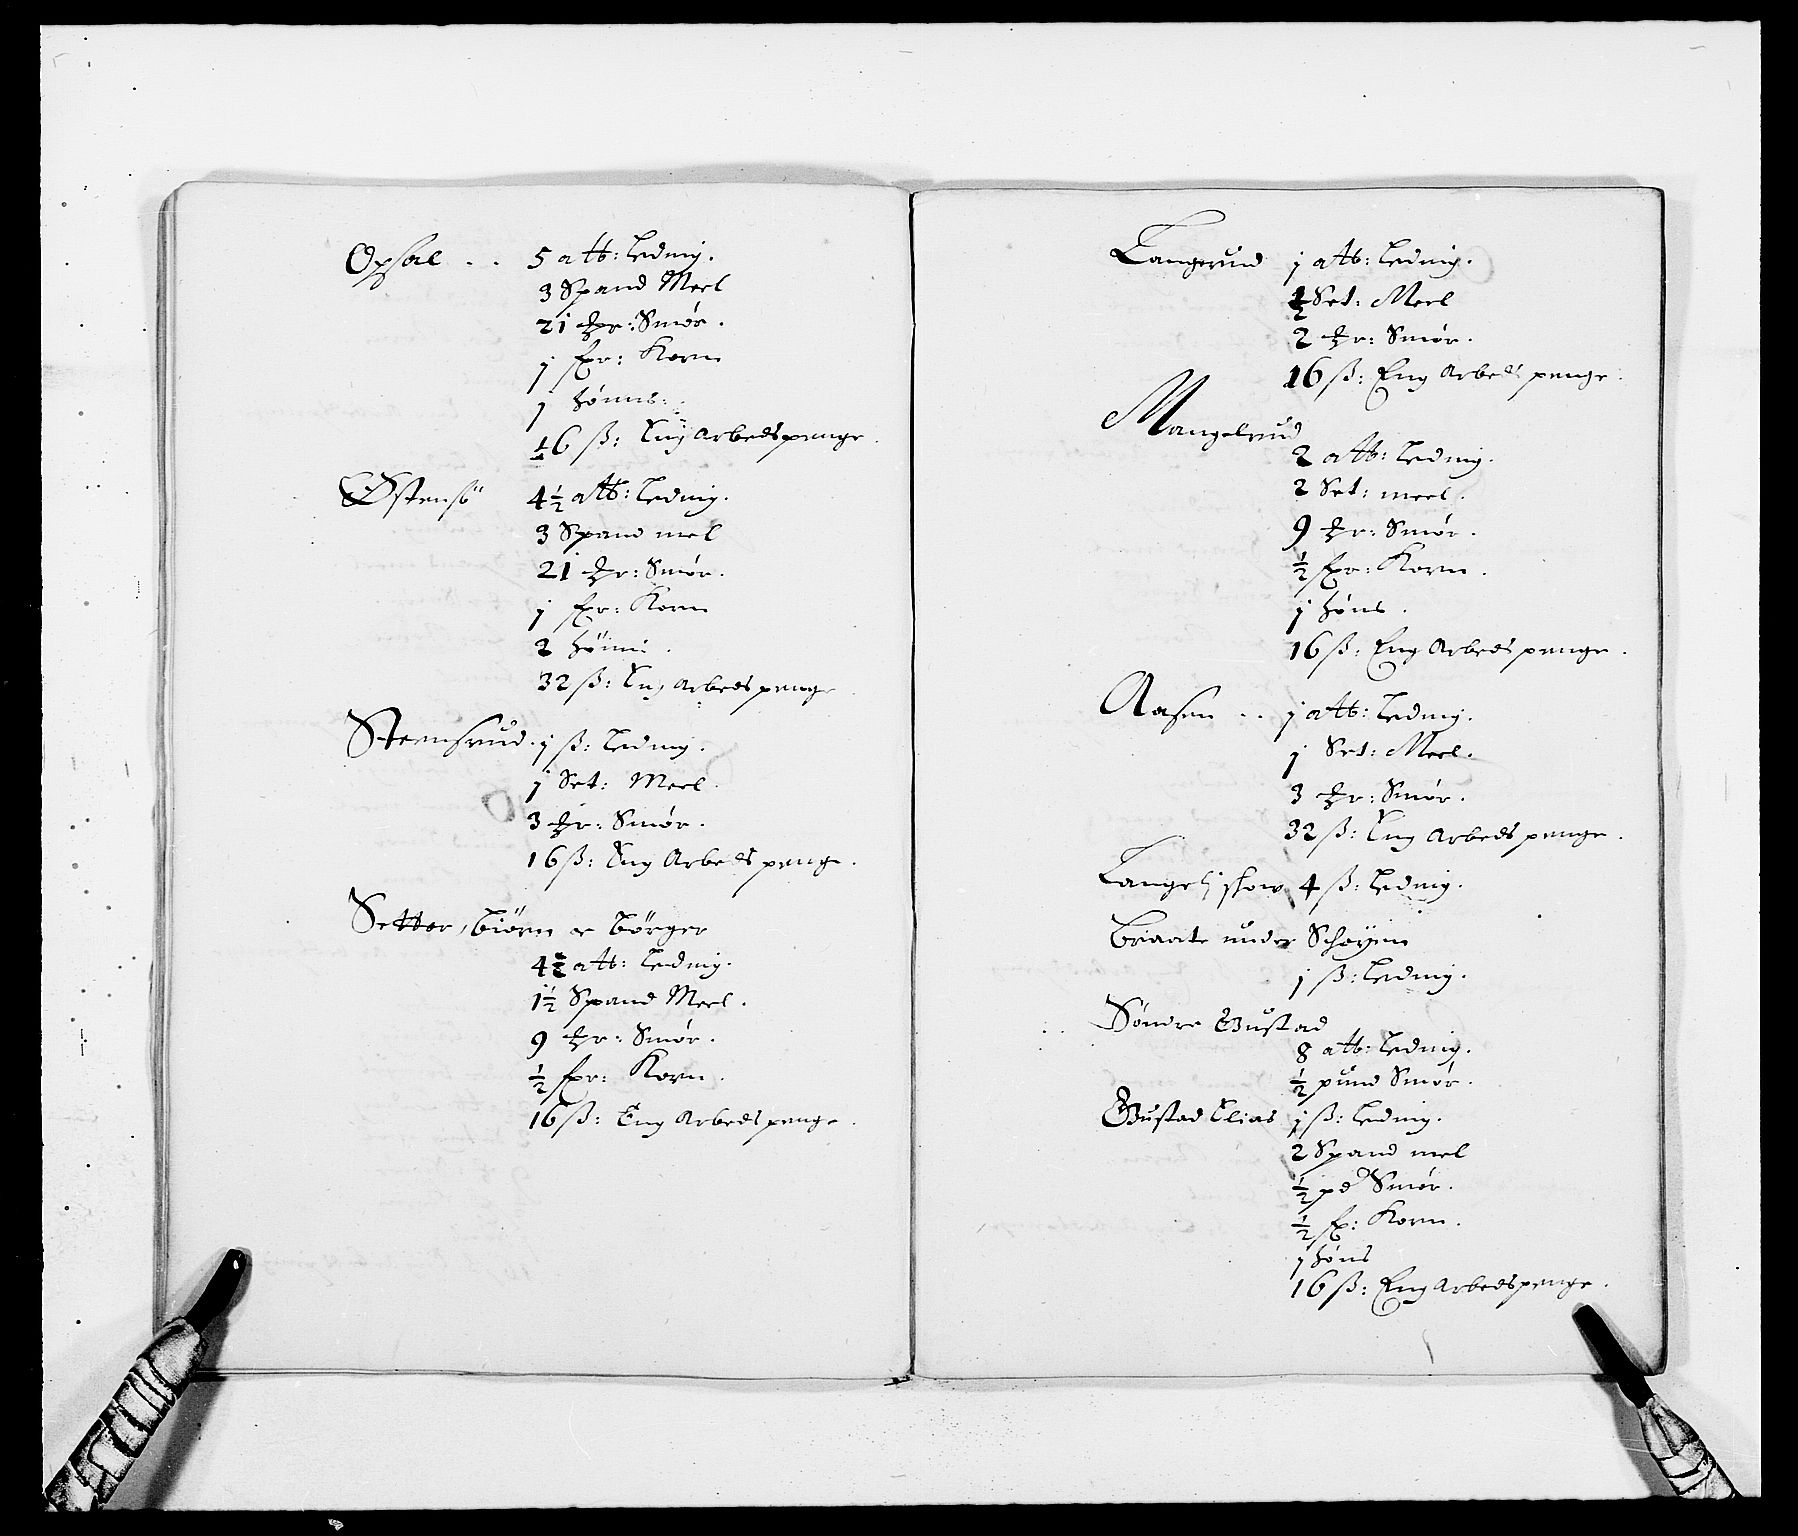 Opsal .. 5 att: Leding.
3 Spand Meel
21 Xr: Smør.
j fr: Korn
j hönns:
16 ß: Eng Arbedspenge.
Østensö 4½ att: Leding.
3 Spand mel
21 Xr: Smør.
j fr: Korn
2 höns.
32 ß: Eng Arbedspenge
Steensrud. j ß: Leding.
j Set: Meel.
3 Xr: Smør.
16 ß: Eng Arbedspenge.
Setter, biörn e börger
4½ att: Leding.
1½ Spand Meel.
9 Xr: Smør.
½ fr: Korn.
16 ß: Eng Arbedspenge.
Langerud j att: Leding.
½ Set: Meel
2 Xr: Smør.
16 ß: Eng Arbeds penge.
Mangelrud
2 att: Leding.
2 Set: meel.
9 Xr: Smør.
½ fr: Korn.
j höns.
16 ß: Eng Arbeds penge.
Aasen .. j att: Leding.
j Set: Meel.
3 Xr: Smør.
32 ß: Eng Arbeds penge.
Langelj skow 4 ß: Leding.
Braate under Schøyen
j ß: Leding.
Søndre Gustad
8 att: Leding.
½ pund Smør.
Gustad Elias j ß: Leding.
2 Spand mel
½ pd Smør.
½ f: Korn.
j höns
16 ß: Eng Arbedspenge.